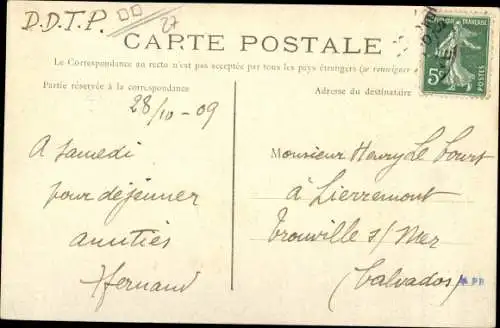 D.D.T.P.
27
CARTE POSTALE
La Correspondance au recto n'est pas acceptée par tous les pays étrangers (se renseigner
Partie réservée à la correspondance
Adresse du destinataire
28/10 - 09
5
POSTES
A samedi
pour déjeuner
amitiés
Hernand
Monsieur Henry Le Court
à Lierremont
Trouville s/ Mer
(Calvados)